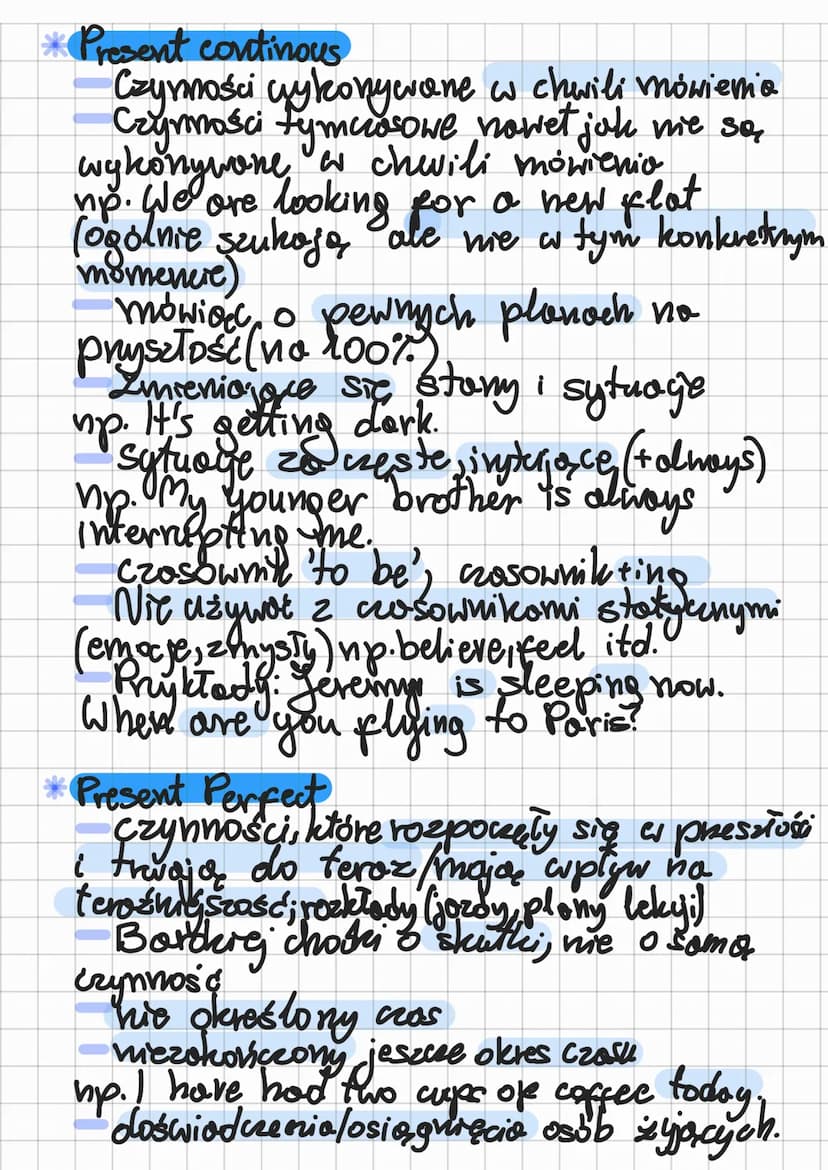 * Present continous
- Czynności wykonywane w chwili mówienia
- Czynności tymczasowe nawet jak nie są
wykonywane w chwili mówienia
np. We are looking for a new flat
(ogólnie szukają, ale nie w tym konkretnym
momencie)
- mówiąc o pewnych planach na
przyszłość (na 100%)
- Zmieniające się stany i sytuacje
np. It's getting dark.
- sytuacje za częste, irytujące (+always)
np. My younger brother is always
interrupting me.
- czasownik 'to be', czasownik+ing
- Nie używać z czasownikami statycznymi
(emocje, zmysły) np. believe, feel itd.
- Przykłady: Jeremy is sleeping now.
When are you flying to Paris?
* Present Perfect
- czynności, które rozpoczęły się w przeszłości
i trwają do teraz/mają wpływ na
teraźniejszość; rozkłady (jazdy, plany lekcji)
- Bardziej chodzi o skutki, nie o samą
czynność
- nie określony czas
- niezakończony jeszcze okres czasu
np. I have had two cups of coffee today.
- doświadczenia/osiągnięcia osób żyjących.